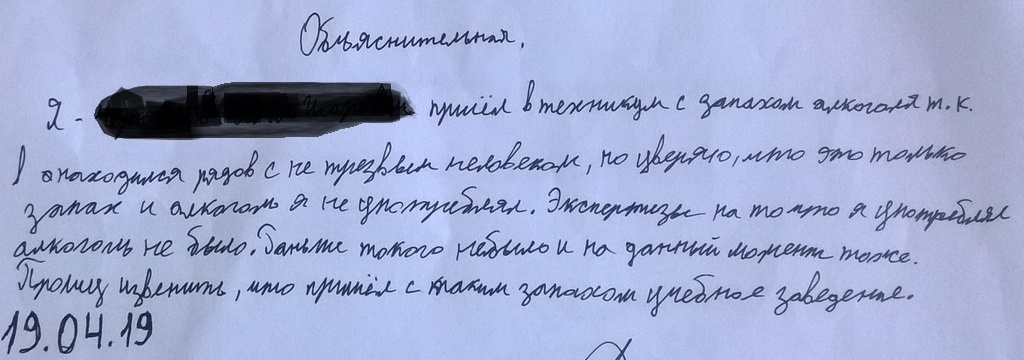 Объяснительная.
Я - пришёл в техникум с запахом алкоголя т.к.
находился рядов с не трезвым человеком, но уверяю, что это только
запах и алкоголь я не употреблял. Экспертизы на то что я употреблял
алкоголь не было. Раньше такого небыло и на данный момент тоже.
Прошу извенить, что пришёл с таким запахом учебное заведение.
19.04.19